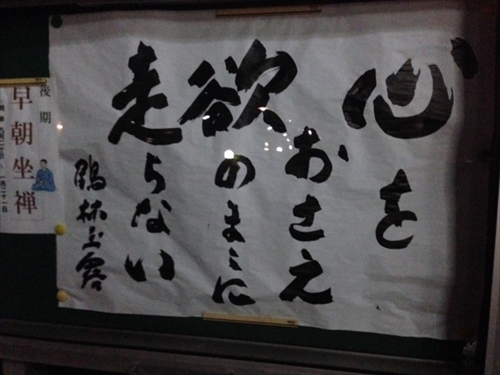 心を
おさえ
欲のまゝに
走らない
鶴林玉露
後期
早朝坐禅